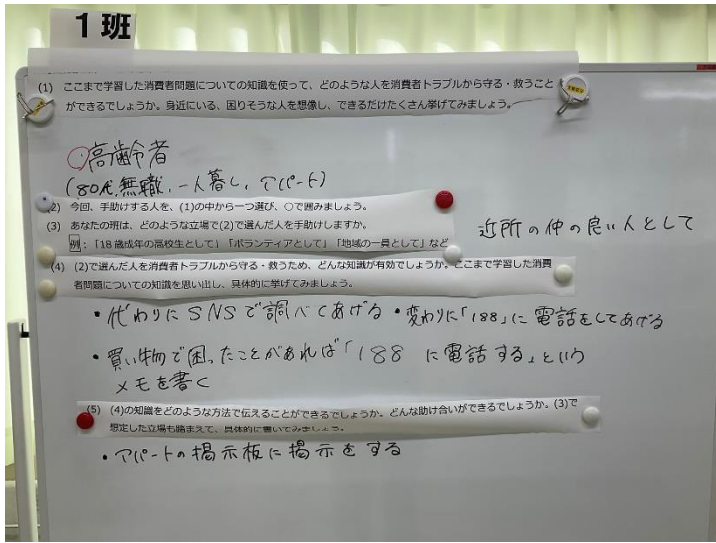 1班
(1) ここまで学習した消費者問題についての知識を使って、どのような人を消費者トラブルから守る・救うこと
ができるでしょうか。身近にいる、困りそうな人を想像し、できるだけたくさん挙げてみましょう。
○高齢者
(80代,無職,一人暮し,アパート)
(2) 今回、手助けする人を、(1)の中から一つ選び、○で囲みましょう。
(3) あなたの班は、どのような立場で(2)で選んだ人を手助けしますか。
例:「18歳成年の高校生として」「ボランティアとして」「地域の一員として」など
近所の仲の良い人として
(4) (2)で選んだ人を消費者トラブルから守る・救うため、どんな知識が有効でしょうか。ここまで学習した消費
者問題についての知識を思い出し、具体的に挙げてみましょう。
・代わりにSNSで調べてあげる ・変わりに「188」に電話をしてあげる
・買い物で困ったことがあれば「188 に電話する」という
メモを書く
(5) (4)の知識をどのような方法で伝えることができるでしょうか。どんな助け合いができるでしょうか。(3)で
想定した立場も踏まえて、具体的に書いてみましょう。
・アパートの掲示板に掲示をする